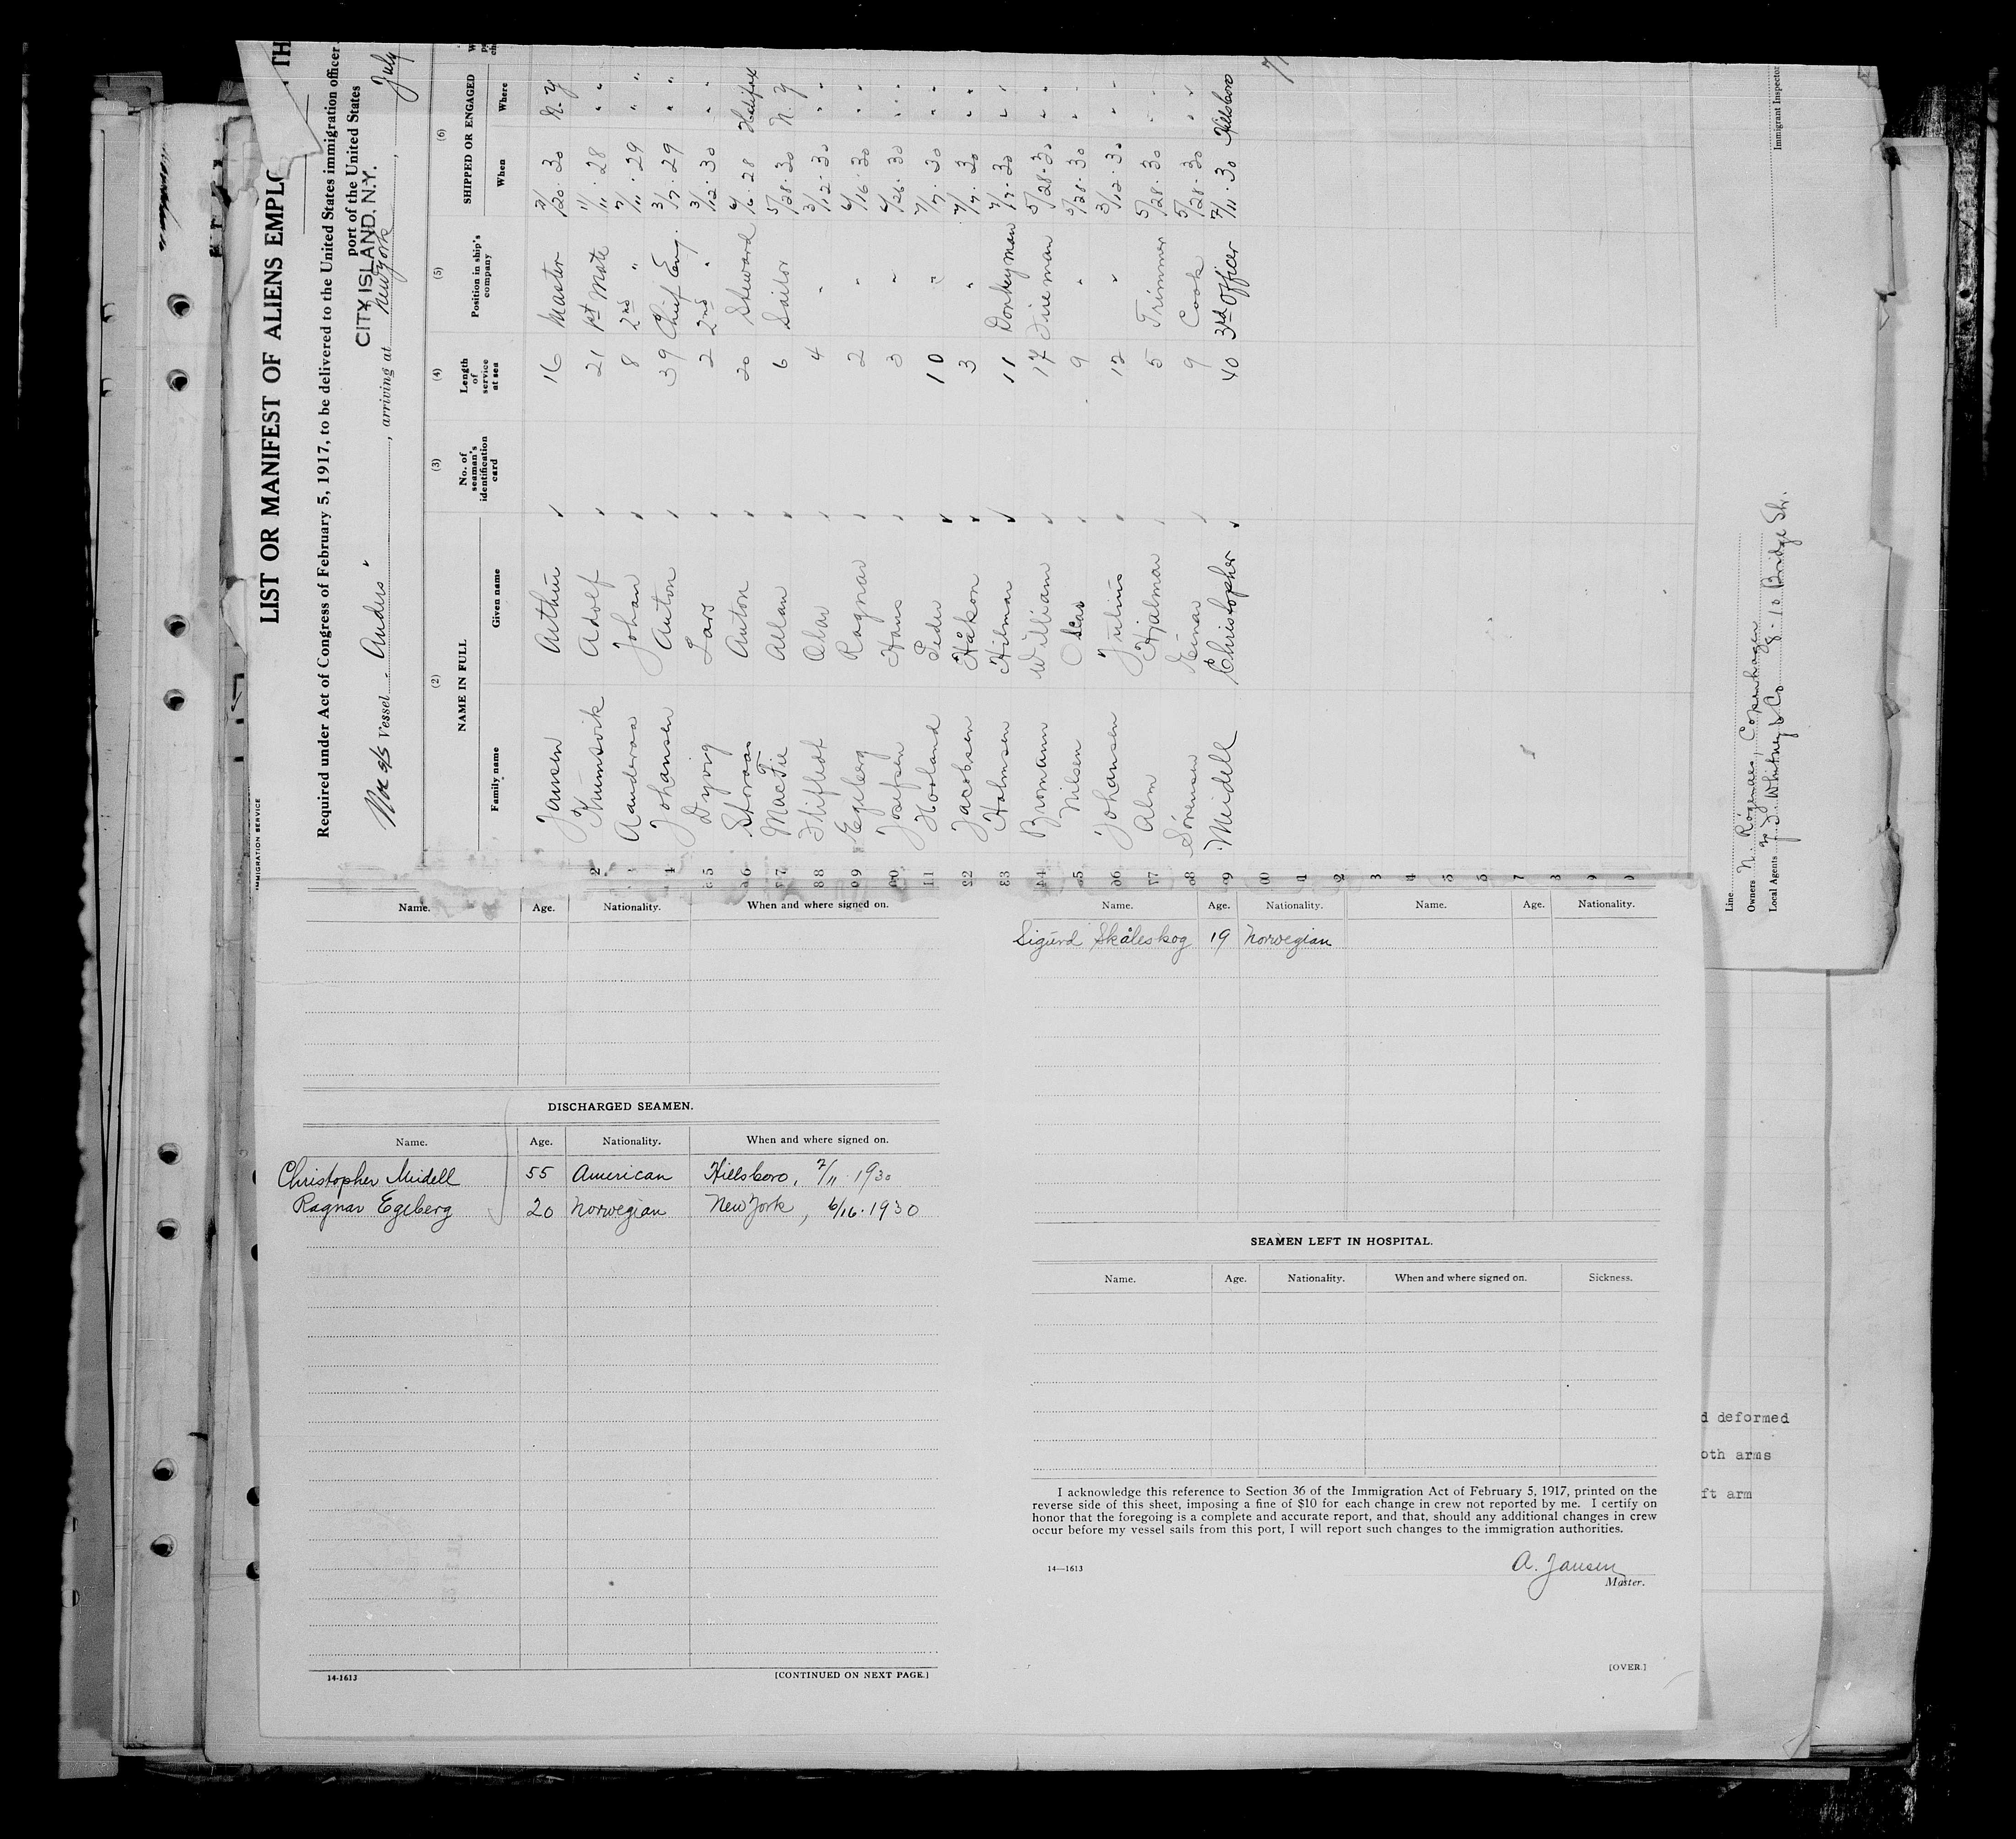 LIST OR MANIFEST OF ALIENS EMPLO
TH
Required under Act of Congress of February 5, 1917, to be delivered to the United States immigration officer
port of the United States
CITY ISLAND, N.Y.
Nor s/s Vessel "Anders", arriving at New York, July
IMMIGRATION SERVICE
(2) (3) (4) (5) (6)
NAME IN FULL No. of seaman's identification card Length of service at sea Position in ship's company SHIPPED OR ENGAGED
Family name Given name When Where
Jansen Arthur 16 Master 2/20·30 N.Y
2 Kumsvik Adolf 21 1st Mate 1/11·28 " "
Aanderaa Johan 8 2nd " 7/11·29 " "
4 Johansen Anton 39 Chief Eng. 3/7·29 " "
5 Dyvig Lars 2 2nd " 3/12·30 " "
6 Storaas Anton 20 Steward 4/6·28 Halifax
7 MacFie Allan 6 Sailor 5/28·30 N.Y
8 Fliflet Olav 4 " 3/12·30 " "
9 Egeberg Ragnar 2 " 6/16·30 " "
Josefsen Hans 3 " 4/26·30 " "
11 Hovland Peder 10 " 7/7·30 " "
Jacobsen Håkon 3 " 7/7·30 " "
Holmsen Hilmar 11 Donkeyman 7/7·30 " "
Bromann William 17 Fireman 5/28·30 " "
Nilsen Olav 9 " 5/28·30 " "
Johansen Julius 12 " 3/12·30 " "
Alm Hjalmar 5 Trimmer 5/28·30 " "
Sørensen Einar 9 Cook 5/28·30 " "
Meidell Christopher 40 3rd Officer 7/11·30 Hillsboro
Line
Owners N. Rogenaes, Copenhagen
Local Agents F. J. Whitney & Co 8-10 Bridge Str.
Immigrant Inspector
Name. Age. Nationality. When and where signed on.
DISCHARGED SEAMEN.
Name. Age. Nationality. When and where signed on.
Christopher Meidell 55 American Hillsboro, 7/11·1930
Ragnar Egeberg 20 Norwegian New York, 6/16·1930
14-1613
[CONTINUED ON NEXT PAGE.]
Name. Age. Nationality. Name. Age. Nationality.
Sigurd Skåleskog 19 Norwegian
SEAMEN LEFT IN HOSPITAL.
Name. Age. Nationality. When and where signed on. Sickness.
I acknowledge this reference to Section 36 of the Immigration Act of February 5, 1917, printed on the
reverse side of this sheet, imposing a fine of $10 for each change in crew not reported by me. I certify on
honor that the foregoing is a complete and accurate report, and that, should any additional changes in crew
occur before my vessel sails from this port, I will report such changes to the immigration authorities.
14—1613
A. Jansen
Master.
[OVER.]
d deformed
oth arms
ft arm